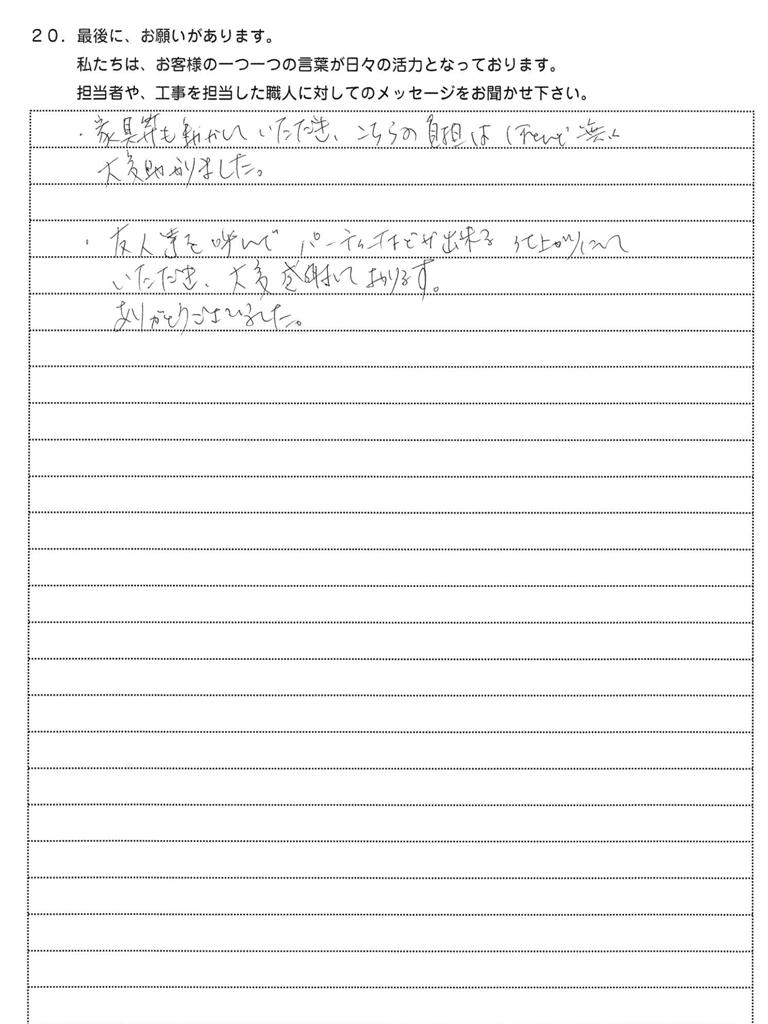 20．最後に、お願いがあります。
私たちは、お客様の一つ一つの言葉が日々の活力となっております。
担当者や、工事を担当した職人に対してのメッセージをお聞かせ下さい。
・家具等も動かしていただき、こちらの負担はほとんど無く
大変助かりました。
・友人達を呼んで パーティーなどが出来る 仕上がりにして
いただき、大変感謝しております。
ありがとうございました。